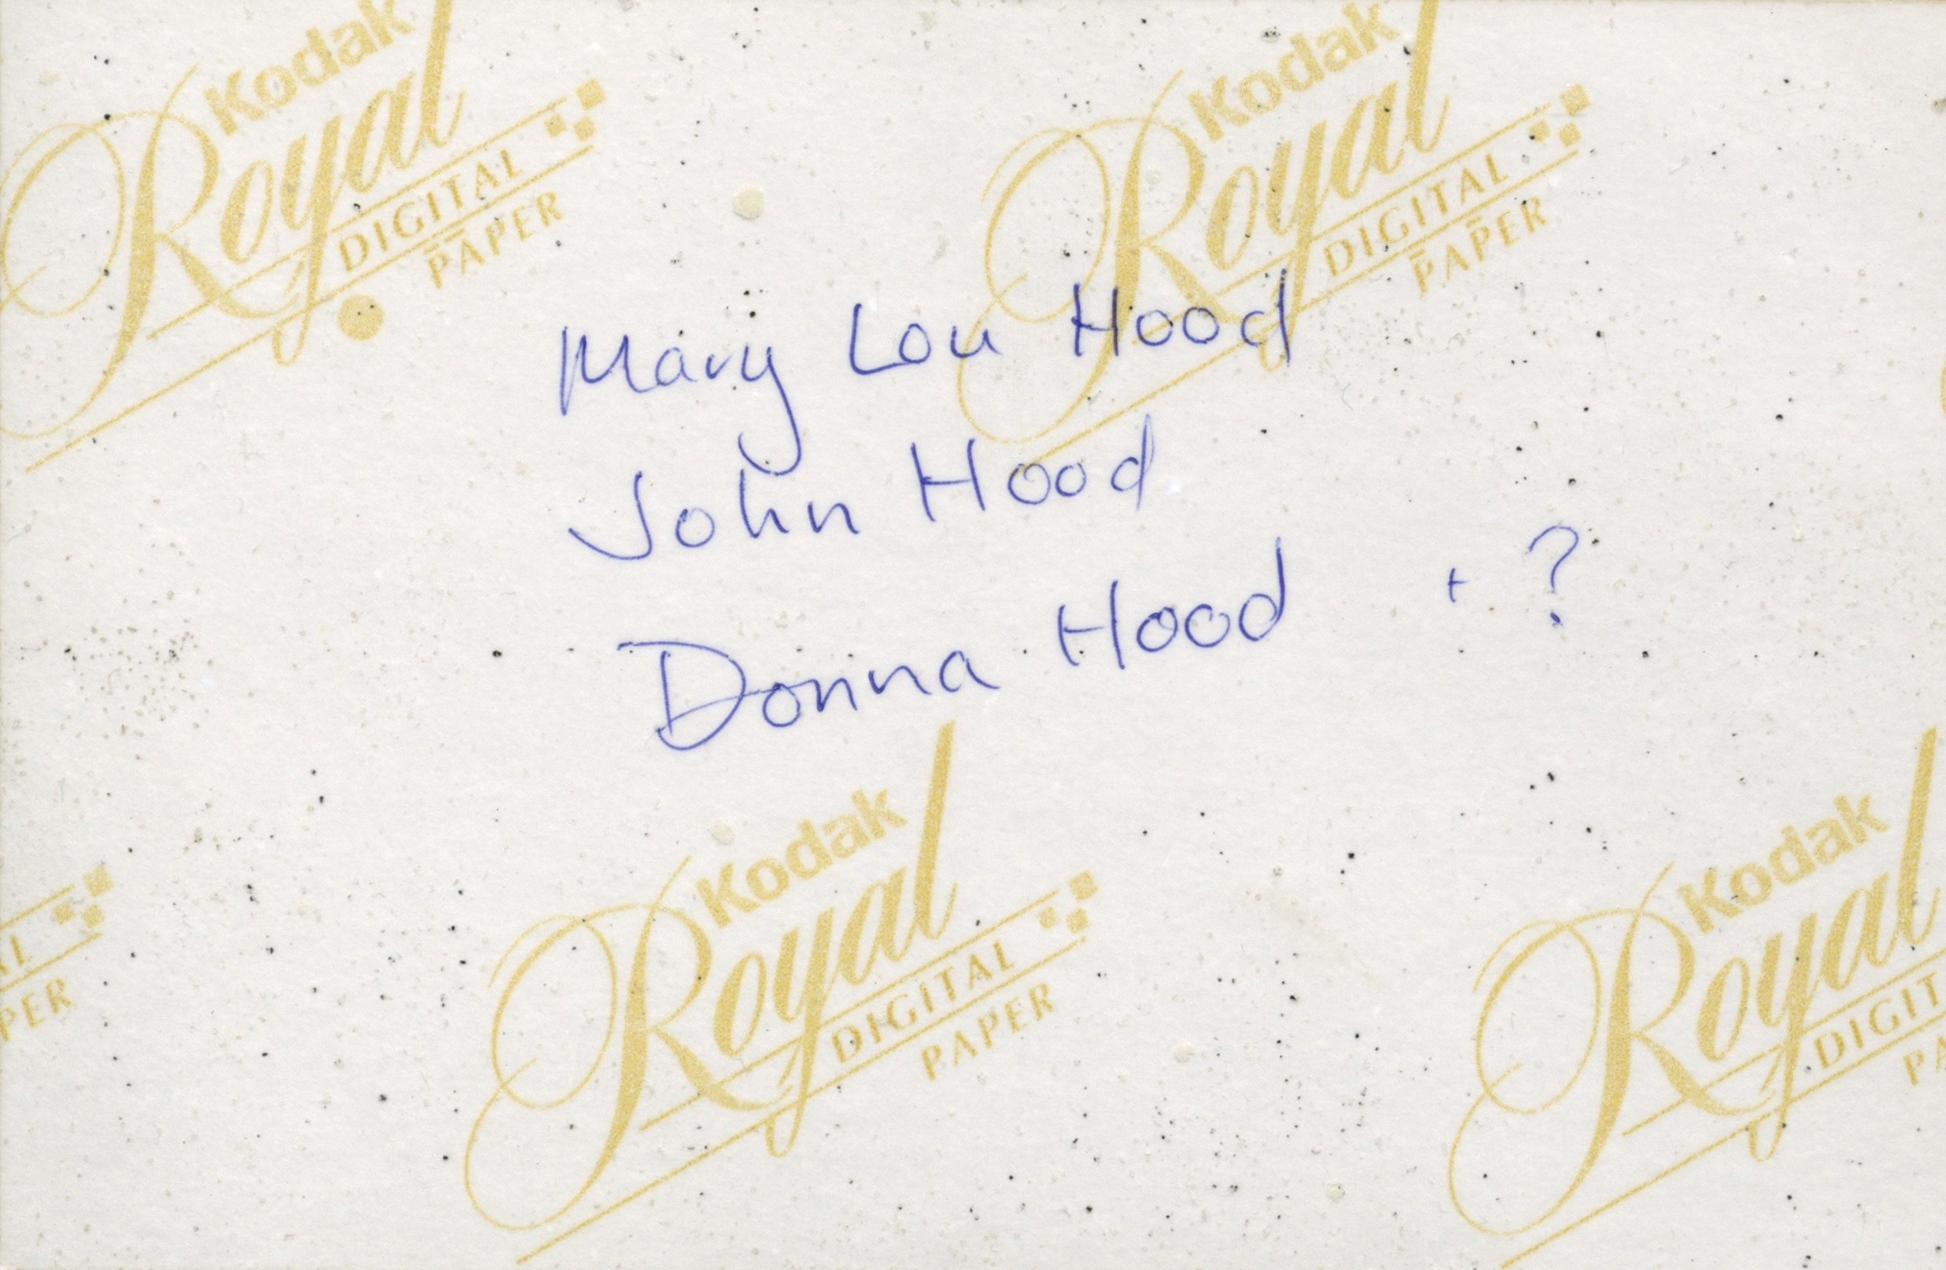 Kodak
Royal
DIGITAL
PAPER
Kodak
Royal
DIGITAL
PAPER
Mary Lou Hood
John Hood
Donna Hood + ?
Kodak
Royal
DIGITAL
PAPER
Kodak
Royal
DIGIT
PA
AL
PER